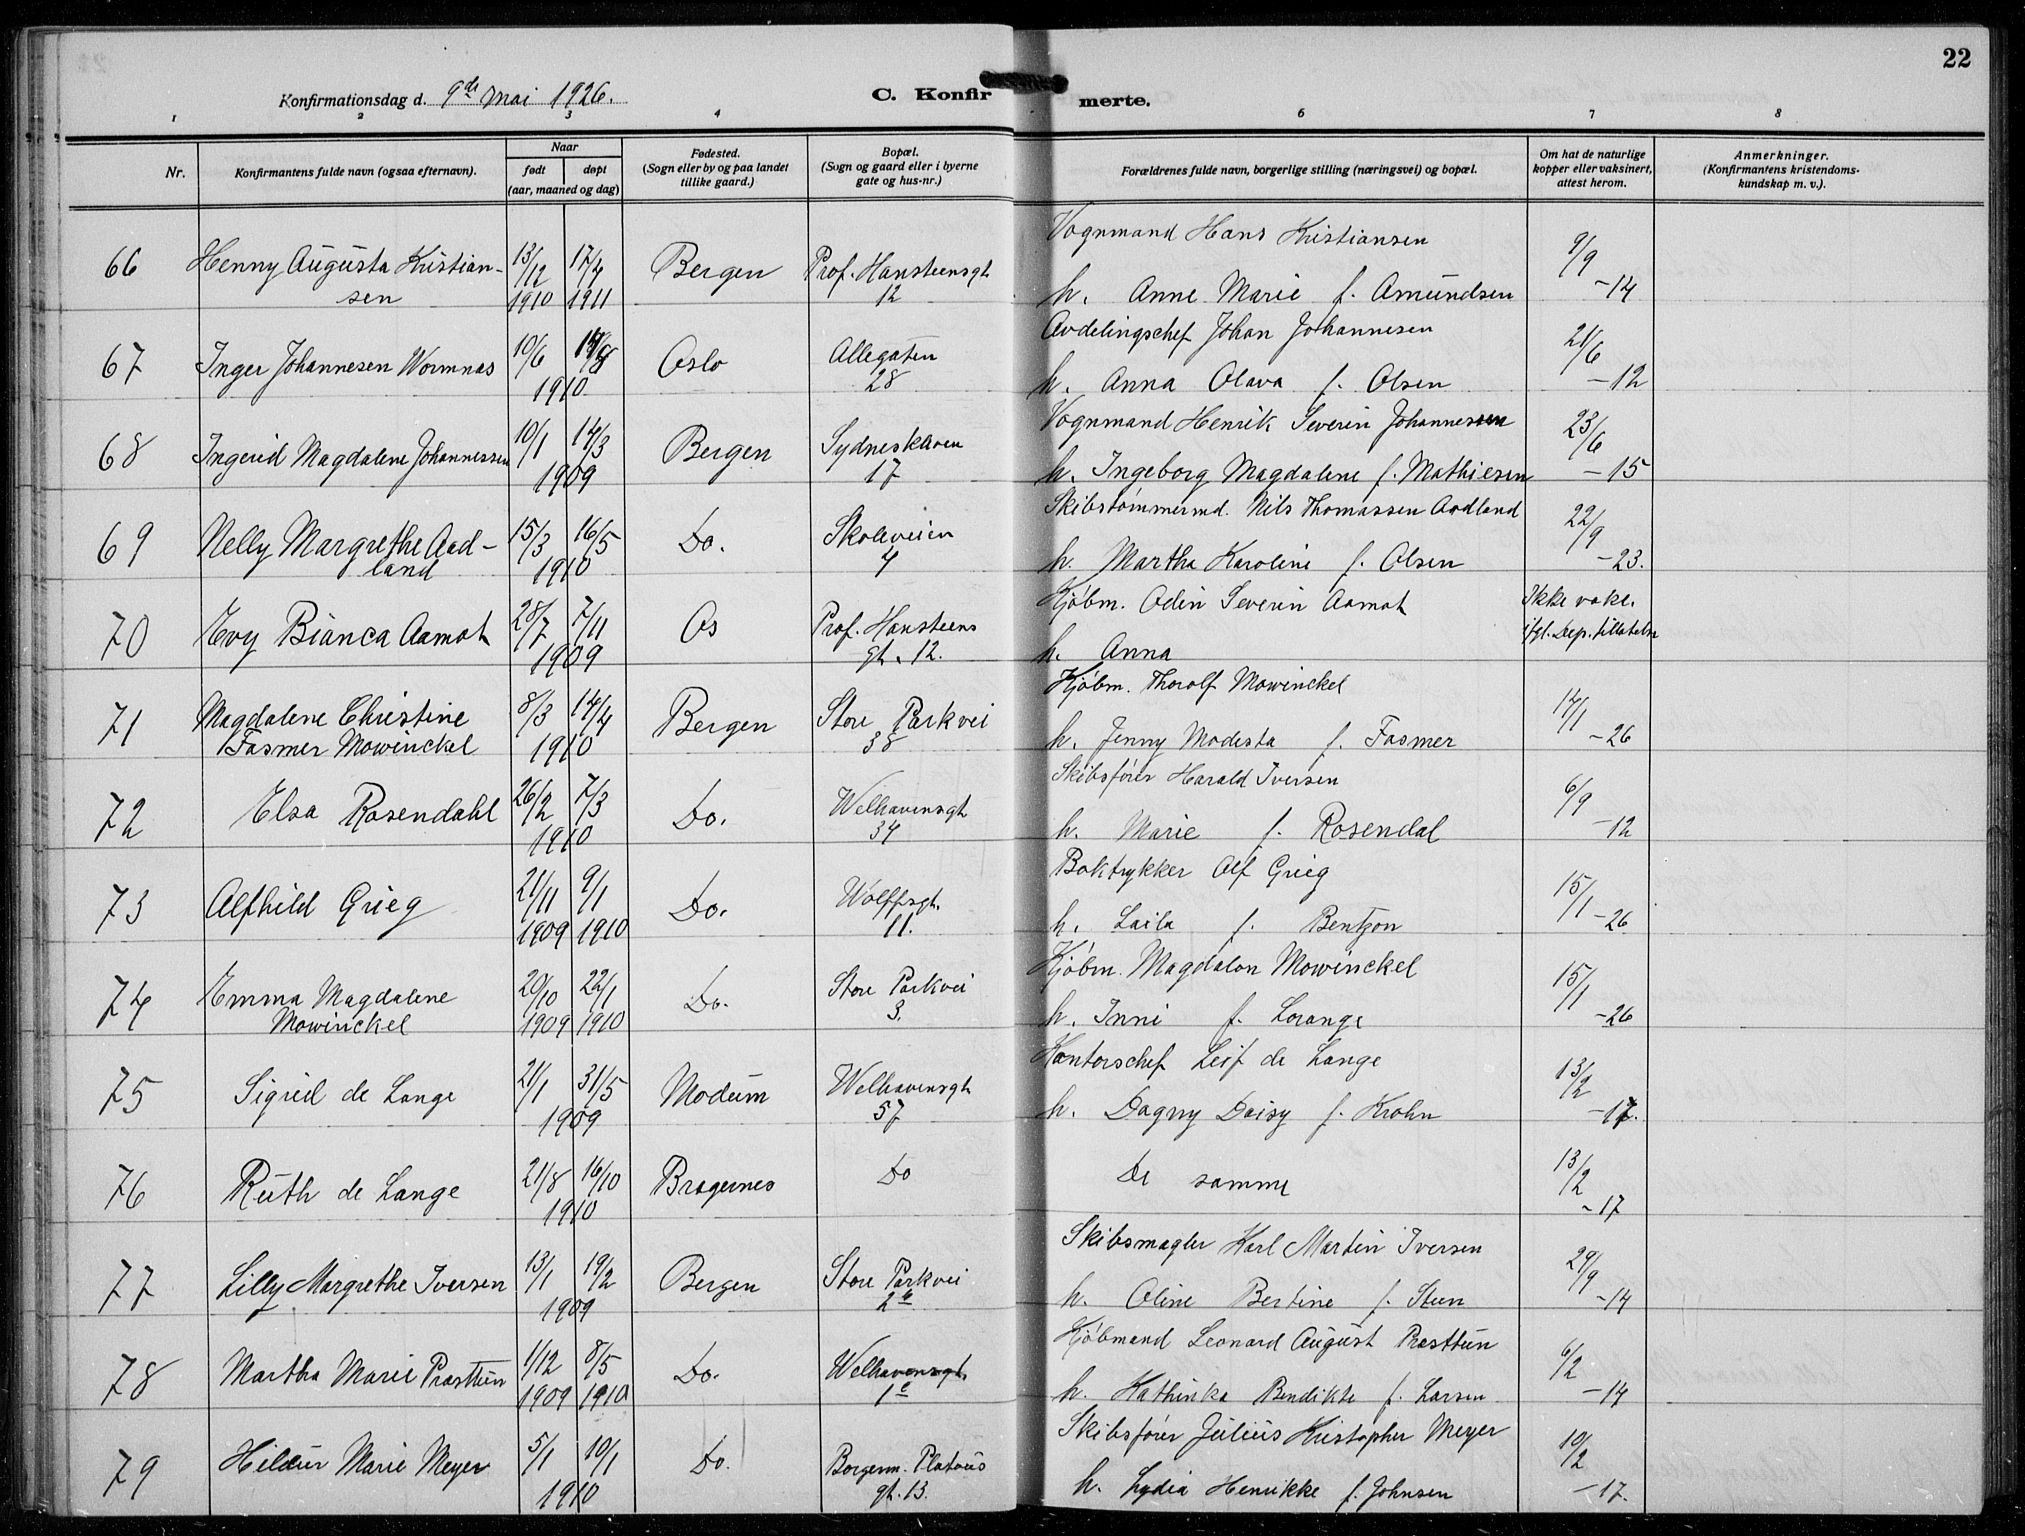 22
Konfirmationsdag d. 9de mai 1926.
C. Konfirmerte.
1 2 3 4 6 7 8
Nr.
Konfirmantens fulde navn (ogsaa efternavn).
Naar
født døpt
(aar, maaned og dag)
Fødested.
(Sogn eller by og paa landet
tillike gaard.)
Bopæl.
(Sogn og gaard eller i byerne
gate og hus-nr.)
Forældrenes fulde navn, borgerlige stilling (næringsvei) og bopæl.
Om hat de naturlige
kopper eller vaksinert,
attest herom.
Anmerkninger.
(Konfirmantens kristendoms-
kundskap m. v.).
66 Henny Augusta Kristian- 13/12 17/4 Bergen Prof. Hansteensgt Vognmand Hans Kristiansen 9/9
sen 1910 1911 12 h. Anne Marie f. Amundsen -14
67 Inger Johannesen Wormnæs 10/6 Oslo Allegaten Avdelingschef Johan Johannesen 21/6
1910 28 h. Anna Olava f. Olsen -12
68 Ingerid Magdalene Johannessen 10/1 14/3 Bergen Sydneskleven Vognmand Henrik Severin Johannesen 23/6
1909 17 h. Ingeborg Magdalene f. Mathiesen -15
69 Nelly Margrethe Aad- 15/3 16/5 Do. Skoleveien Skibstømmermd. Nils Thomassen Aadland 22/9
land 1910 4 h. Martha Karoline f. Olsen -23.
70 Evy Bianca Aamot 28/7 7/11 Os Prof. Hansteens Kjøbm. Odin Severin Aamot Ikke vaks.
1909 gt. 12. h. Anna ifgl. Dep. tillatelse
71 Magdalene Christine 8/3 14/4 Bergen Store Parkvei Kjøbm. Thorolf Mowinckel 14/1
Fasmer Mowinckel 1910 38 h. Jenny Modesta f. Fasmer -26
72 Elsa Rosendahl 26/2 7/3 Do. Welhavensgt Skibsfører Harald Iversen 6/9
1910 34 h. Marie f. Rosendal -12
73 Alfhild Grieg 21/11 9/1 Do. Wolffsgt. Boktrykker Alf Grieg 15/1
1909 1910 11. h. Laila f. Bentzon -26
74 Emma Magdalene 20/10 22/1 Do. Store Parkvei Kjøbm. Magdalon Mowinckel 15/1
Mowinckel 1909 1910 3. h. Inni f. Lorange -26
75 Sigrid de Lange 21/1 31/5 Modum Welhavensgt Kontorschef Leif de Lange 13/2
1909 57 h. Dagny Daisy f. Krohn -17.
76 Ruth de Lange 21/8 16/10 Bragernes Do De samme 13/2
1910 -17
77 Lilly Margrethe Iversen 13/1 19/2 Bergen Store Parkvei Skibsmægler Karl Martin Iversen 29/9
1909 2b h. Oline Bertine f. Steen -14
78 Martha Marie Præsttun 1/12 8/5 Do. Welhavensgt. Kjøbmand Leonard August Præsttun 6/2
1909 1910 1c h. Kathinka Bendikte f. Larsen -14
79 Hildur Marie Meyer 5/1 10/1 Do. Borgerm. Platous Skibsfører Julius Kristopher Meyer 10/2
1910 gt. 13. h. Lydia Henrikke f. Johnsen -17.